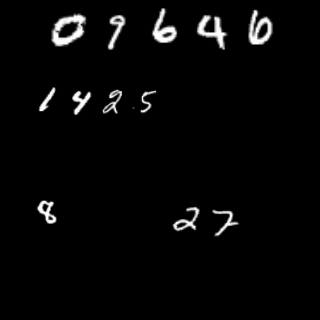 09646
142.5
8 27